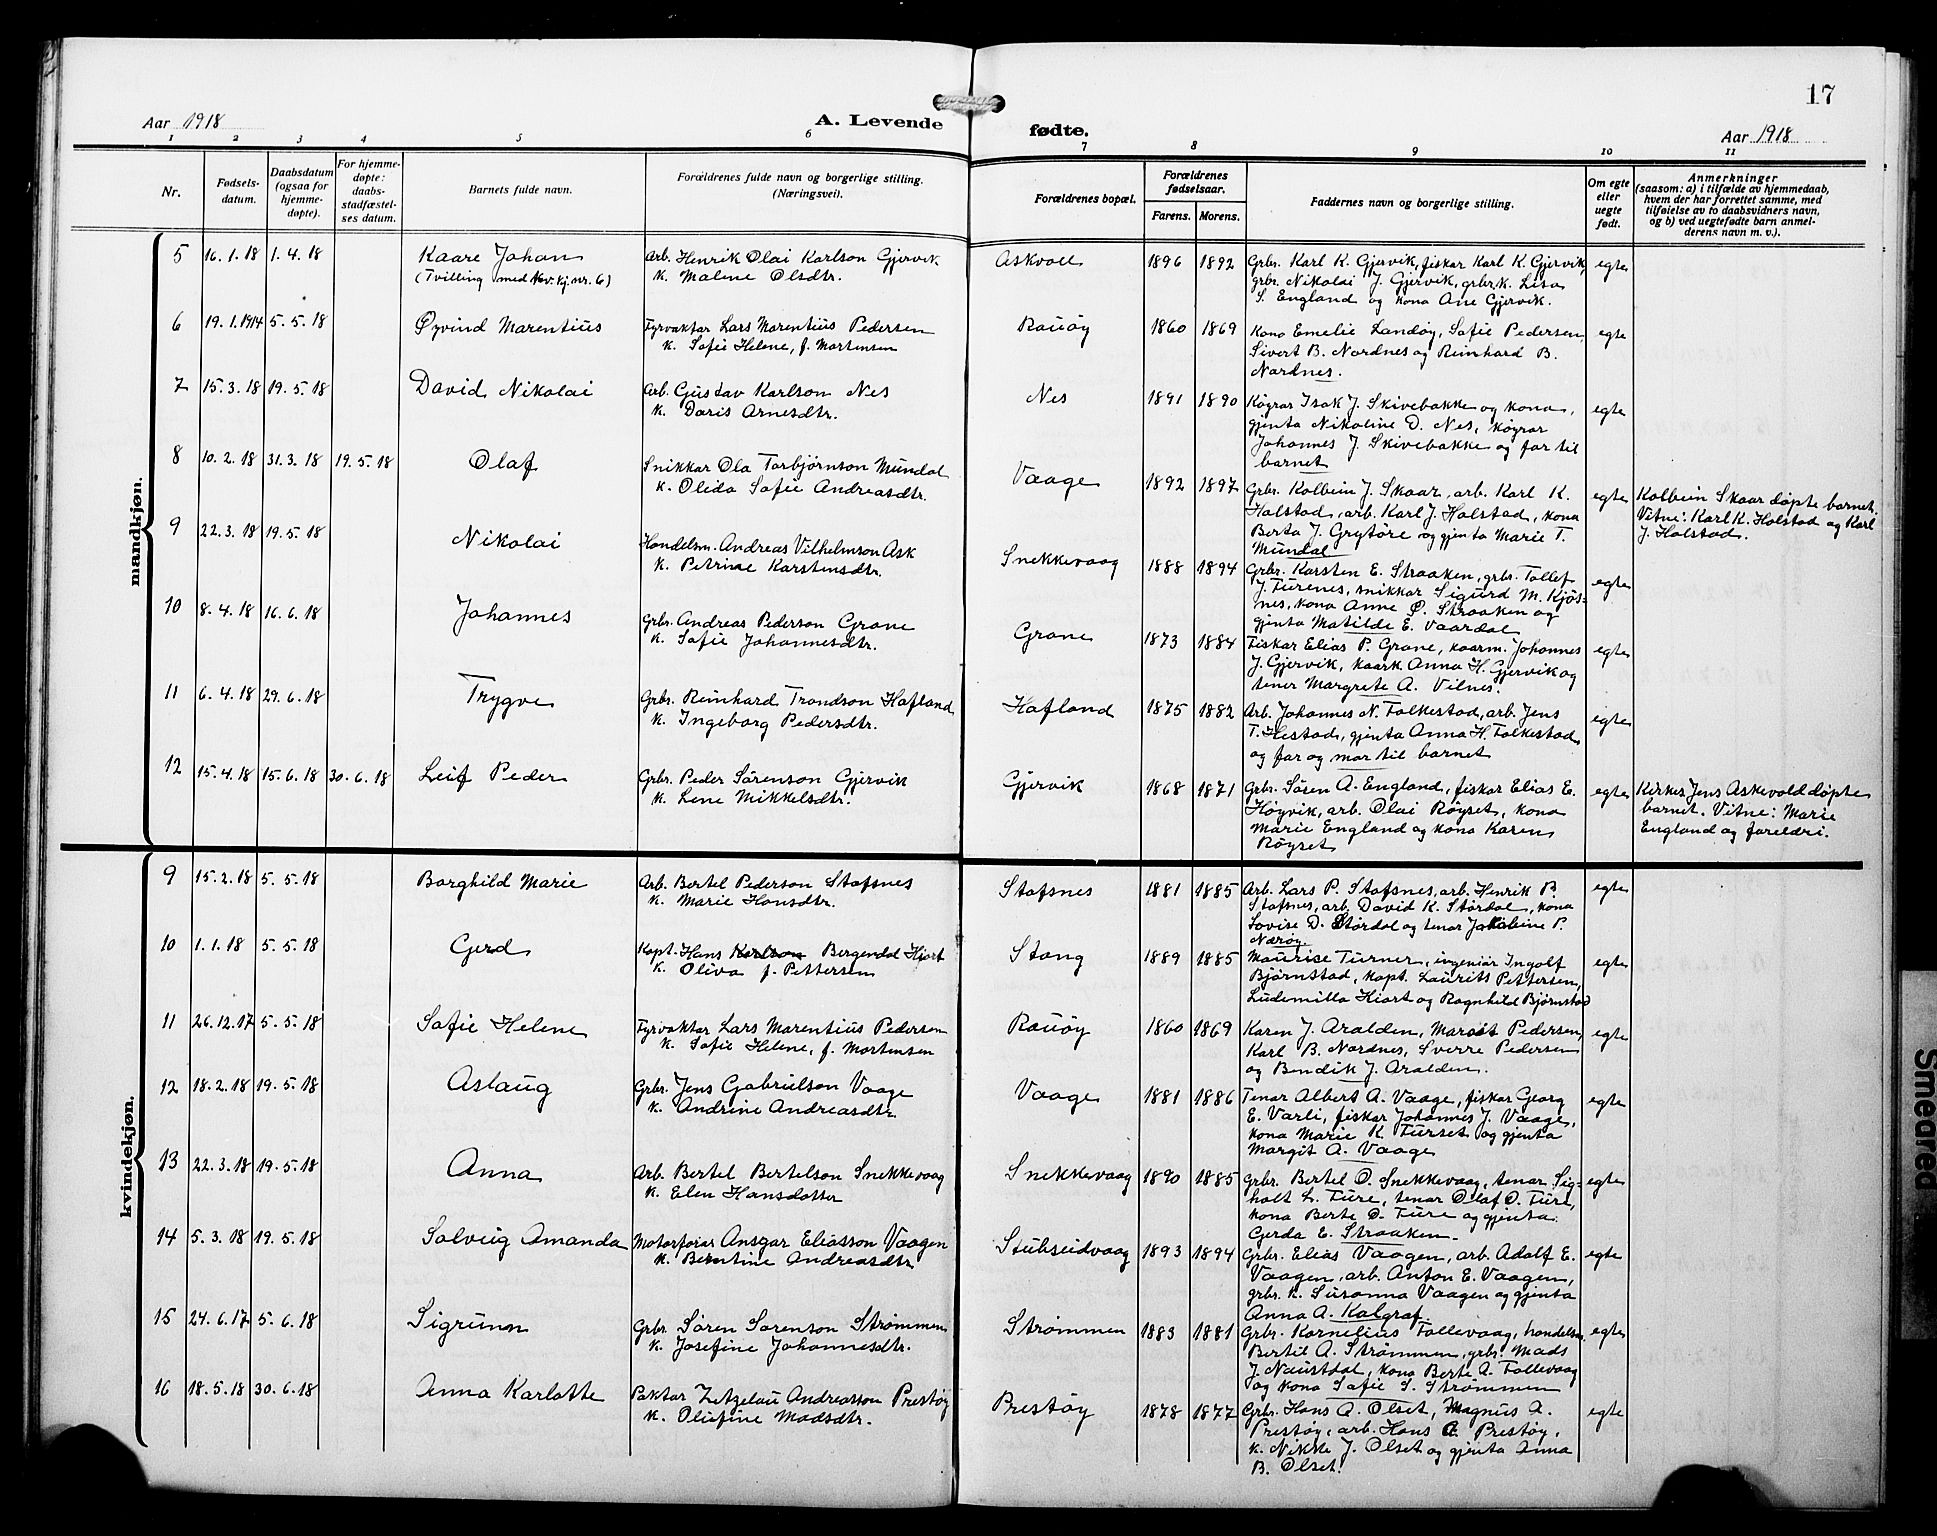 17
Aar 1918
A. Levende
fødte.
Aar 1918
1 2 3 4 5 6 7 8 9 10 11
Nr.
Fødsels-
datum.
Daabsdatum
(ogsaa for
hjemme-
døpte).
For hjemme-
døpte:
daabs-
stadfæstel-
ses datum.
Barnets fulde navn.
Forældrenes fulde navn og borgerlige stilling.
(Næringsvei).
Forældrenes bopæl.
Forældrenes
fødselsaar.
Farens. Morens.
Faddernes navn og borgerlige stilling.
Om egte
eller
uegte
født.
Anmerkninger
(saasom: a) i tilfælde av hjemmedaab,
hvem der har forrettet samme, med
tilføielse av to daabsvidners navn,
og b) ved uegtefødte barn anmel-
derens navn m. v.).
mandkjøn.
5 16.1.18 1.4.18 Kaare Johan Arb. Henrik Olai Karlson Gjervik Askvoll 1896 1892 Grbr. Karl K. Gjervik, fiskar Karl K. Gjervik, egte
(Tvilling med kv.kj. nr. 6) K. Malene Olsdtr. grbr. Nikolai J. Gjervik, grbr.k. Lisa
S. England og kona Ane Gjervik.
6 19.1.1914 5.5.18 Øyvind Marentius Fyrvaktar Lars Marentius Pedersen Rauøy 1860 1869 Kona Emelie Landøy, Sofie Pedersen, egte
K. Sofie Helene, f. Mortensen Sivert B. Nordnes og Reinhard B.
Nordnes.
7 15.3.18 19.5.18 David Nikolai Arb. Gustav Karlson Nes Nes 1891 1890 Køgrar Isak J. Skivebakke og kona, egte
K. Doris Arnesdtr. gjenta Nikoline D. Nes, køgrar
Johannes J. Skivebakke og far til
barnet
8 10.2.18 31.3.18 19.5.18 Olaf Snikkar Ola Torbjørnson Mundal Vaage 1892 1897 Grbr. Kolbein J. Skaar, arb. Karl K. egte Kolbein Skaar døpte barnet.
K. Olida Sofie Andreasdtr. Holstad, arb. Karl J. Holstad, kona Vitne: Karl K. Holstad og Karl
Berta J. Grytøre og gjenta Marie T. J. Holstad.
Mundal
9 22.3.18 19.5.18 Nikolai Handelsm. Andreas Vilhelmson Ask Snekkevaag 1888 1894 Grbr. Karsten E. Straaken, grbr. Tollef egte
K. Petrine Karstensdtr. J. Furenes, snikkar Sigurd M. Kjøs-
nes, kona Anne P. Straaken og
gjenta Matilde E. Vaardal
10 8.4.18 16.6.18 Johannes Grbr. Andreas Pederson Grane Grane 1873 1884 Fiskar Elias P. Grane, kaarm. Johannes egte
K. Sofie Johannesdtr. J. Gjervik, kaark. Anna H. Gjervik og
tener Margrete A. Vilnes.
11 6.4.18 29.6.18 Trygve Grbr. Reinhard Trondson Hafland Hafland 1875 1882 Arb. Johannes N. Folkestad, arb. Jens egte
K. Ingeborg Pedersdtr. T. Hestad, gjenta Anna H. Folkestad
og far og mor til barnet
12 15.4.18 15.6.18 30.6.18 Leif Peder Grbr. Peder Sørenson Gjervik Gjervik 1868 1871 Grbr. Søren A. England, fiskar Elias E. egte Kirkes. Jens Askevold døpte
K. Lene Mikkelsdtr. Høyvik, arb. Olai Røyset, kona barnet. Vitne: Marie
Marie England og kona Karen England og foreldri.
Røyset
kvindekjøn.
9 15.2.18 5.5.18 Borghild Marie Arb. Bertel Pederson Stafsnes Stafsnes 1881 1885 Arb. Lars P. Stafsnes, arb. Henrik P. egte
K. Marie Hansdtr. Stafsnes, arb. David K. Størdal, kona
Lovise D. Størdal og tenar Jakobine P.
Nærøy
10 1.1.18 5.5.18 Gerd Kapt. Hans Karlson Bergendal Hjort Stang 1889 1885 Maurise Turner, ingeniør Ingolf egte
K. Oliva f. Pettersen Bjørnstad, kapt. Laurits Pettersen,
Ludemilla Hiort og Ragnhild Bjørnstad
11 26.12.17 5.5.18 Sofie Helene Fyrvaktar Lars Marentius Pedersen Rauøy 1860 1869 Karen J. Aralden, Margit Pedersen, egte
K. Sofie Helene, f. Mortensen Karl B. Nordnes, Sverre Pedersen
og Bendik J. Aralden.
12 18.2.18 19.5.18 Aslaug Grbr. Jens Gabrielson Vaage Vaage 1881 1886 Tenar Albert A. Vaage, fiskar Georg egte
K. Andrine Andreasdtr E. Varli, fiskar Johannes J. Vaage,
kona Marie K. Furset og gjenta
Margit A. Vaage
13 22.3.18 19.5.18 Anna Arb. Bertel Bertelson Snekkevaag Snekkevaag 1890 1885 Grbr. Bertel O. Snekkevaag, tenar Sig- egte
K. Elen Hansdotter holt L. Fure, tenar Olaf O. Fure,
kona Berte D. Fure og gjenta
Gerda E. Straaken.
14 5.3.18 19.5.18 Solveig Amanda Motorførar Ansgar Eliasson Vaagen Stubseidvaag 1893 1894 Grbr. Elias Vaagen, arb. Adolf E. egte
K. Berntine Andreasdtr Vaagen, arb. Anton E. Vaagen,
grbr. K. Susanna Vaagen og gjenta
Anna A. Kalgraf
15 24.6.17 5.6.18 Sigrunn Grbr. Søren Sørenson Strømmen Strømmen 1883 1881 Grbr. Kornelius Follevaag, handelsm. egte
K. Josefine Johannesdtr. Bertil A. Strømmen, grbr. Mads
J. Naustdal, kona Berte A. Follevaag
og kona Sofie S. Strømmen
16 18.5.18 30.6.18 Anna Karlotte Paktar Zetzelau Andreasson Prestøy Prestøy 1878 1877 Grbr. Hans A. Olset, Magnus A. egte
K. Olufine Madsdtr. Prestøy, arb. Hans A. Prestøy,
K. Nikke J. Olset og gjenta Anna
B. Olset.
Smeared